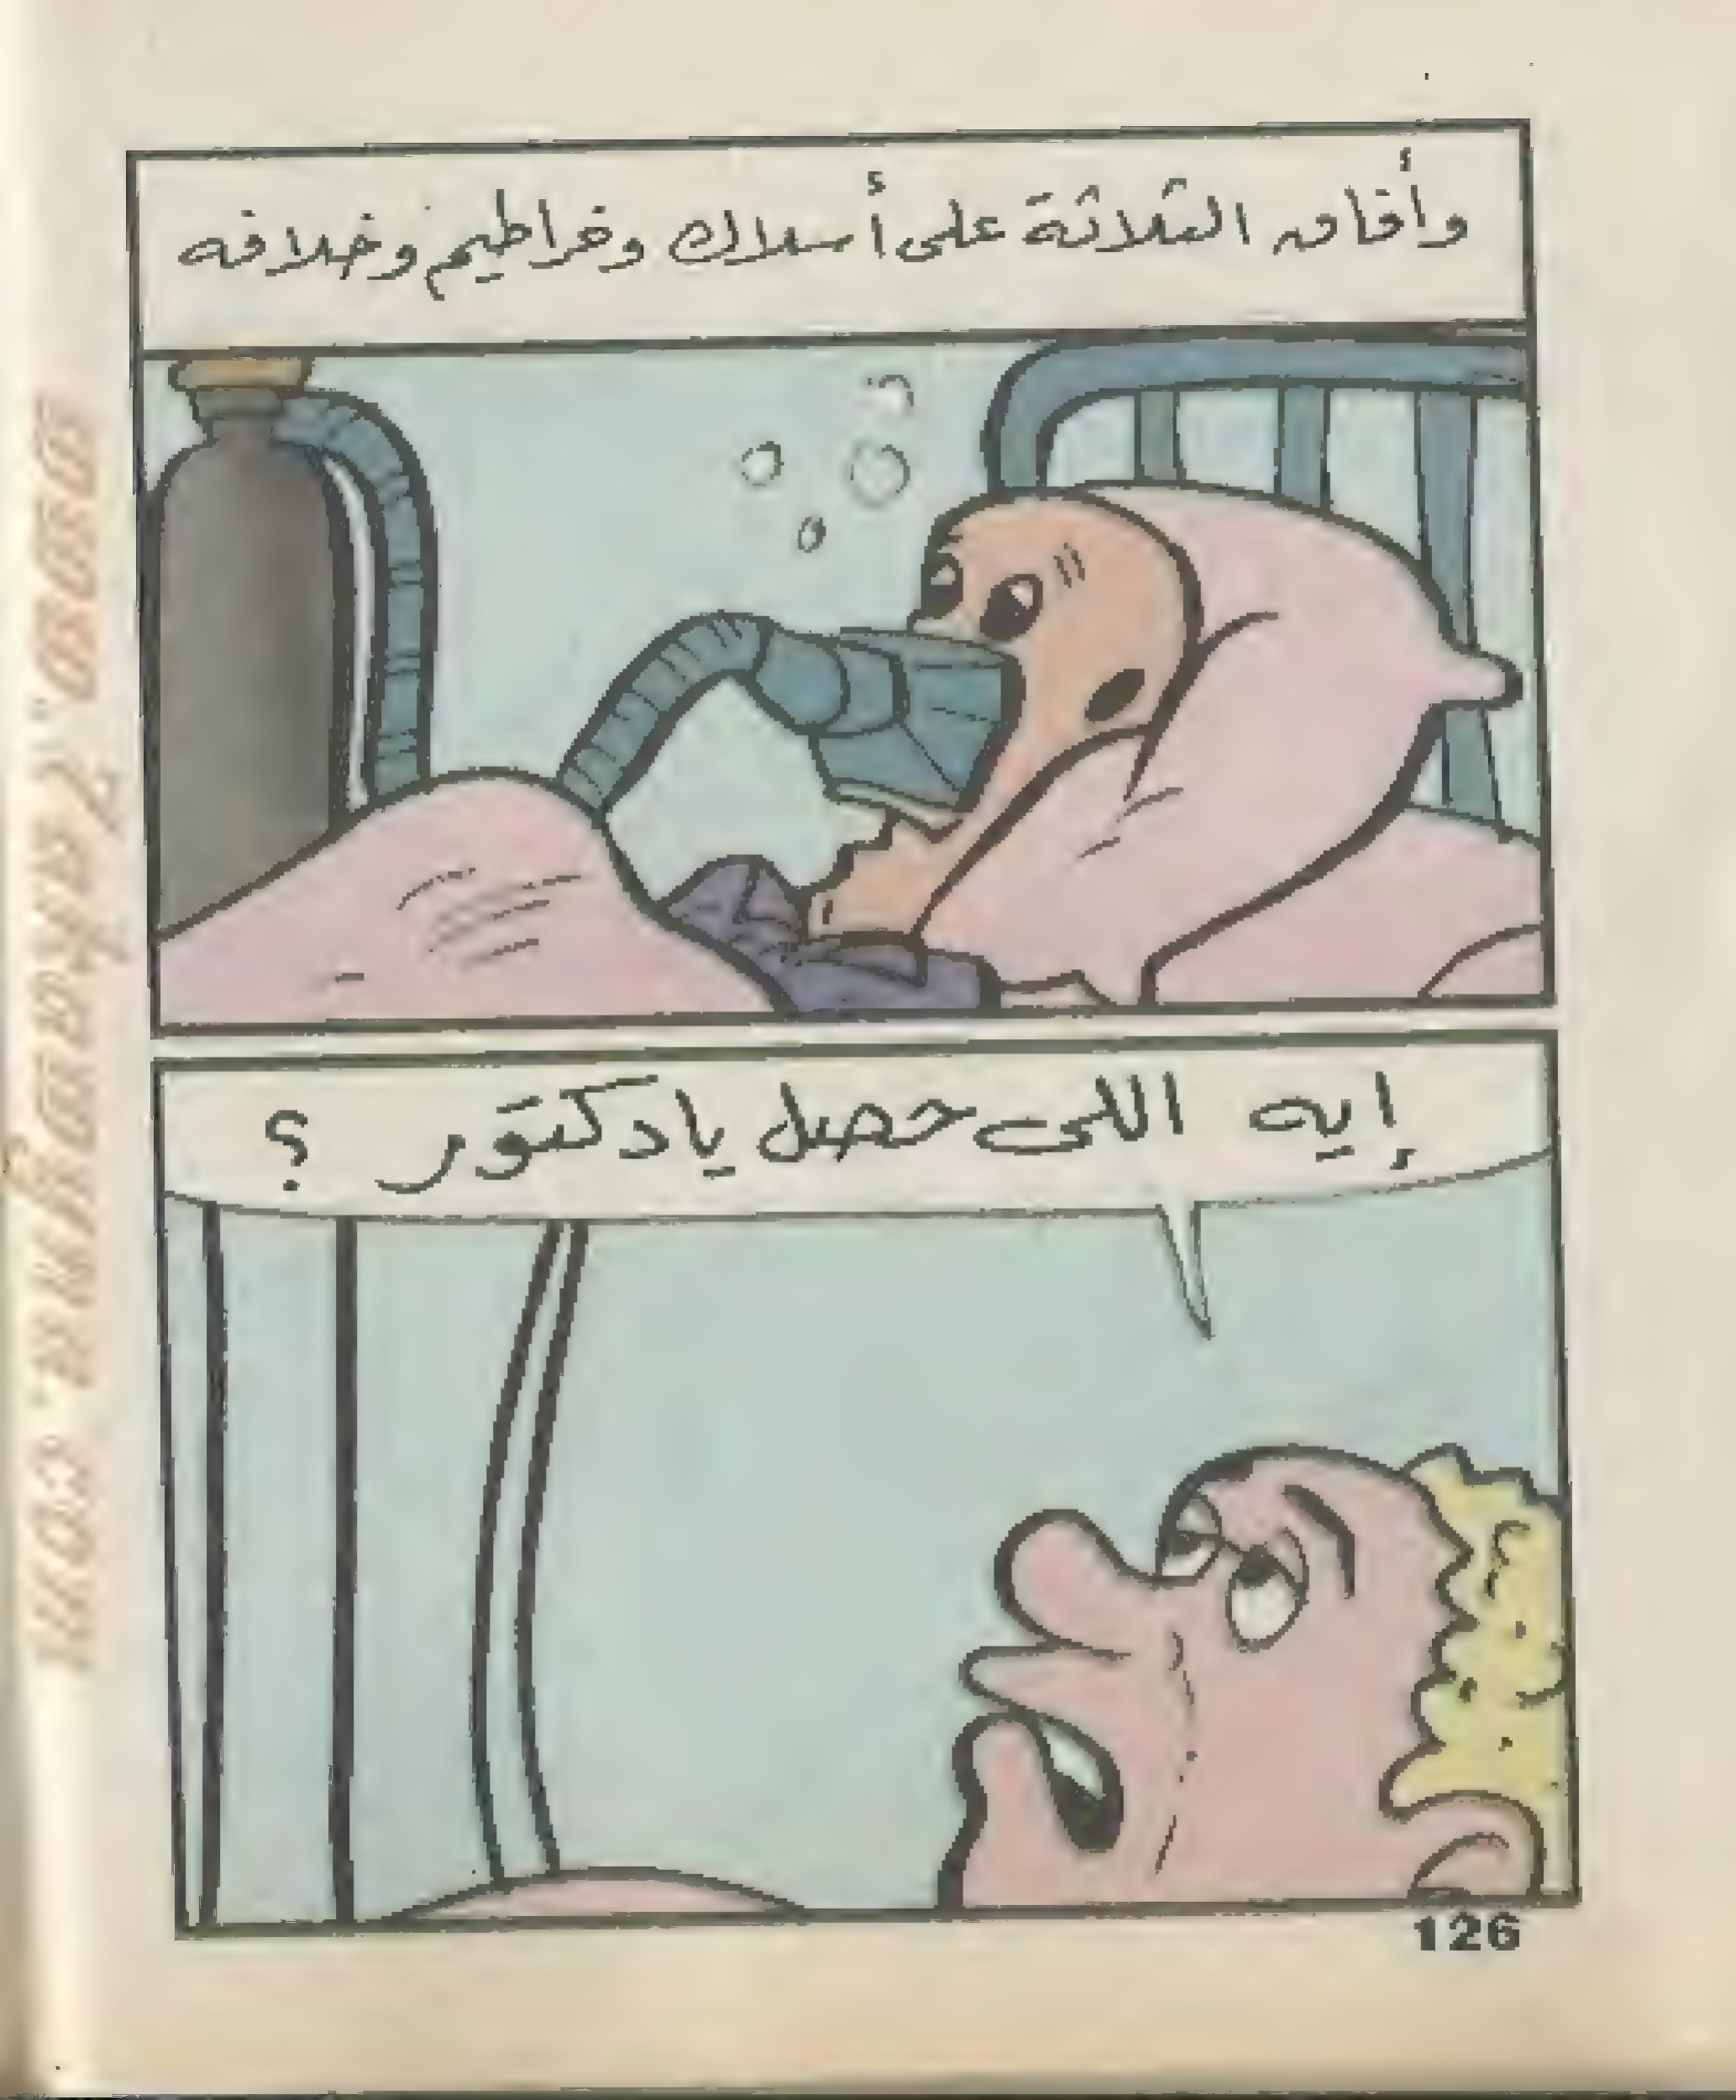 وأفاق الثلاثة على أسلاك وخراطيم وخلافه
إيه اللى حصل يا دكتور ؟
126